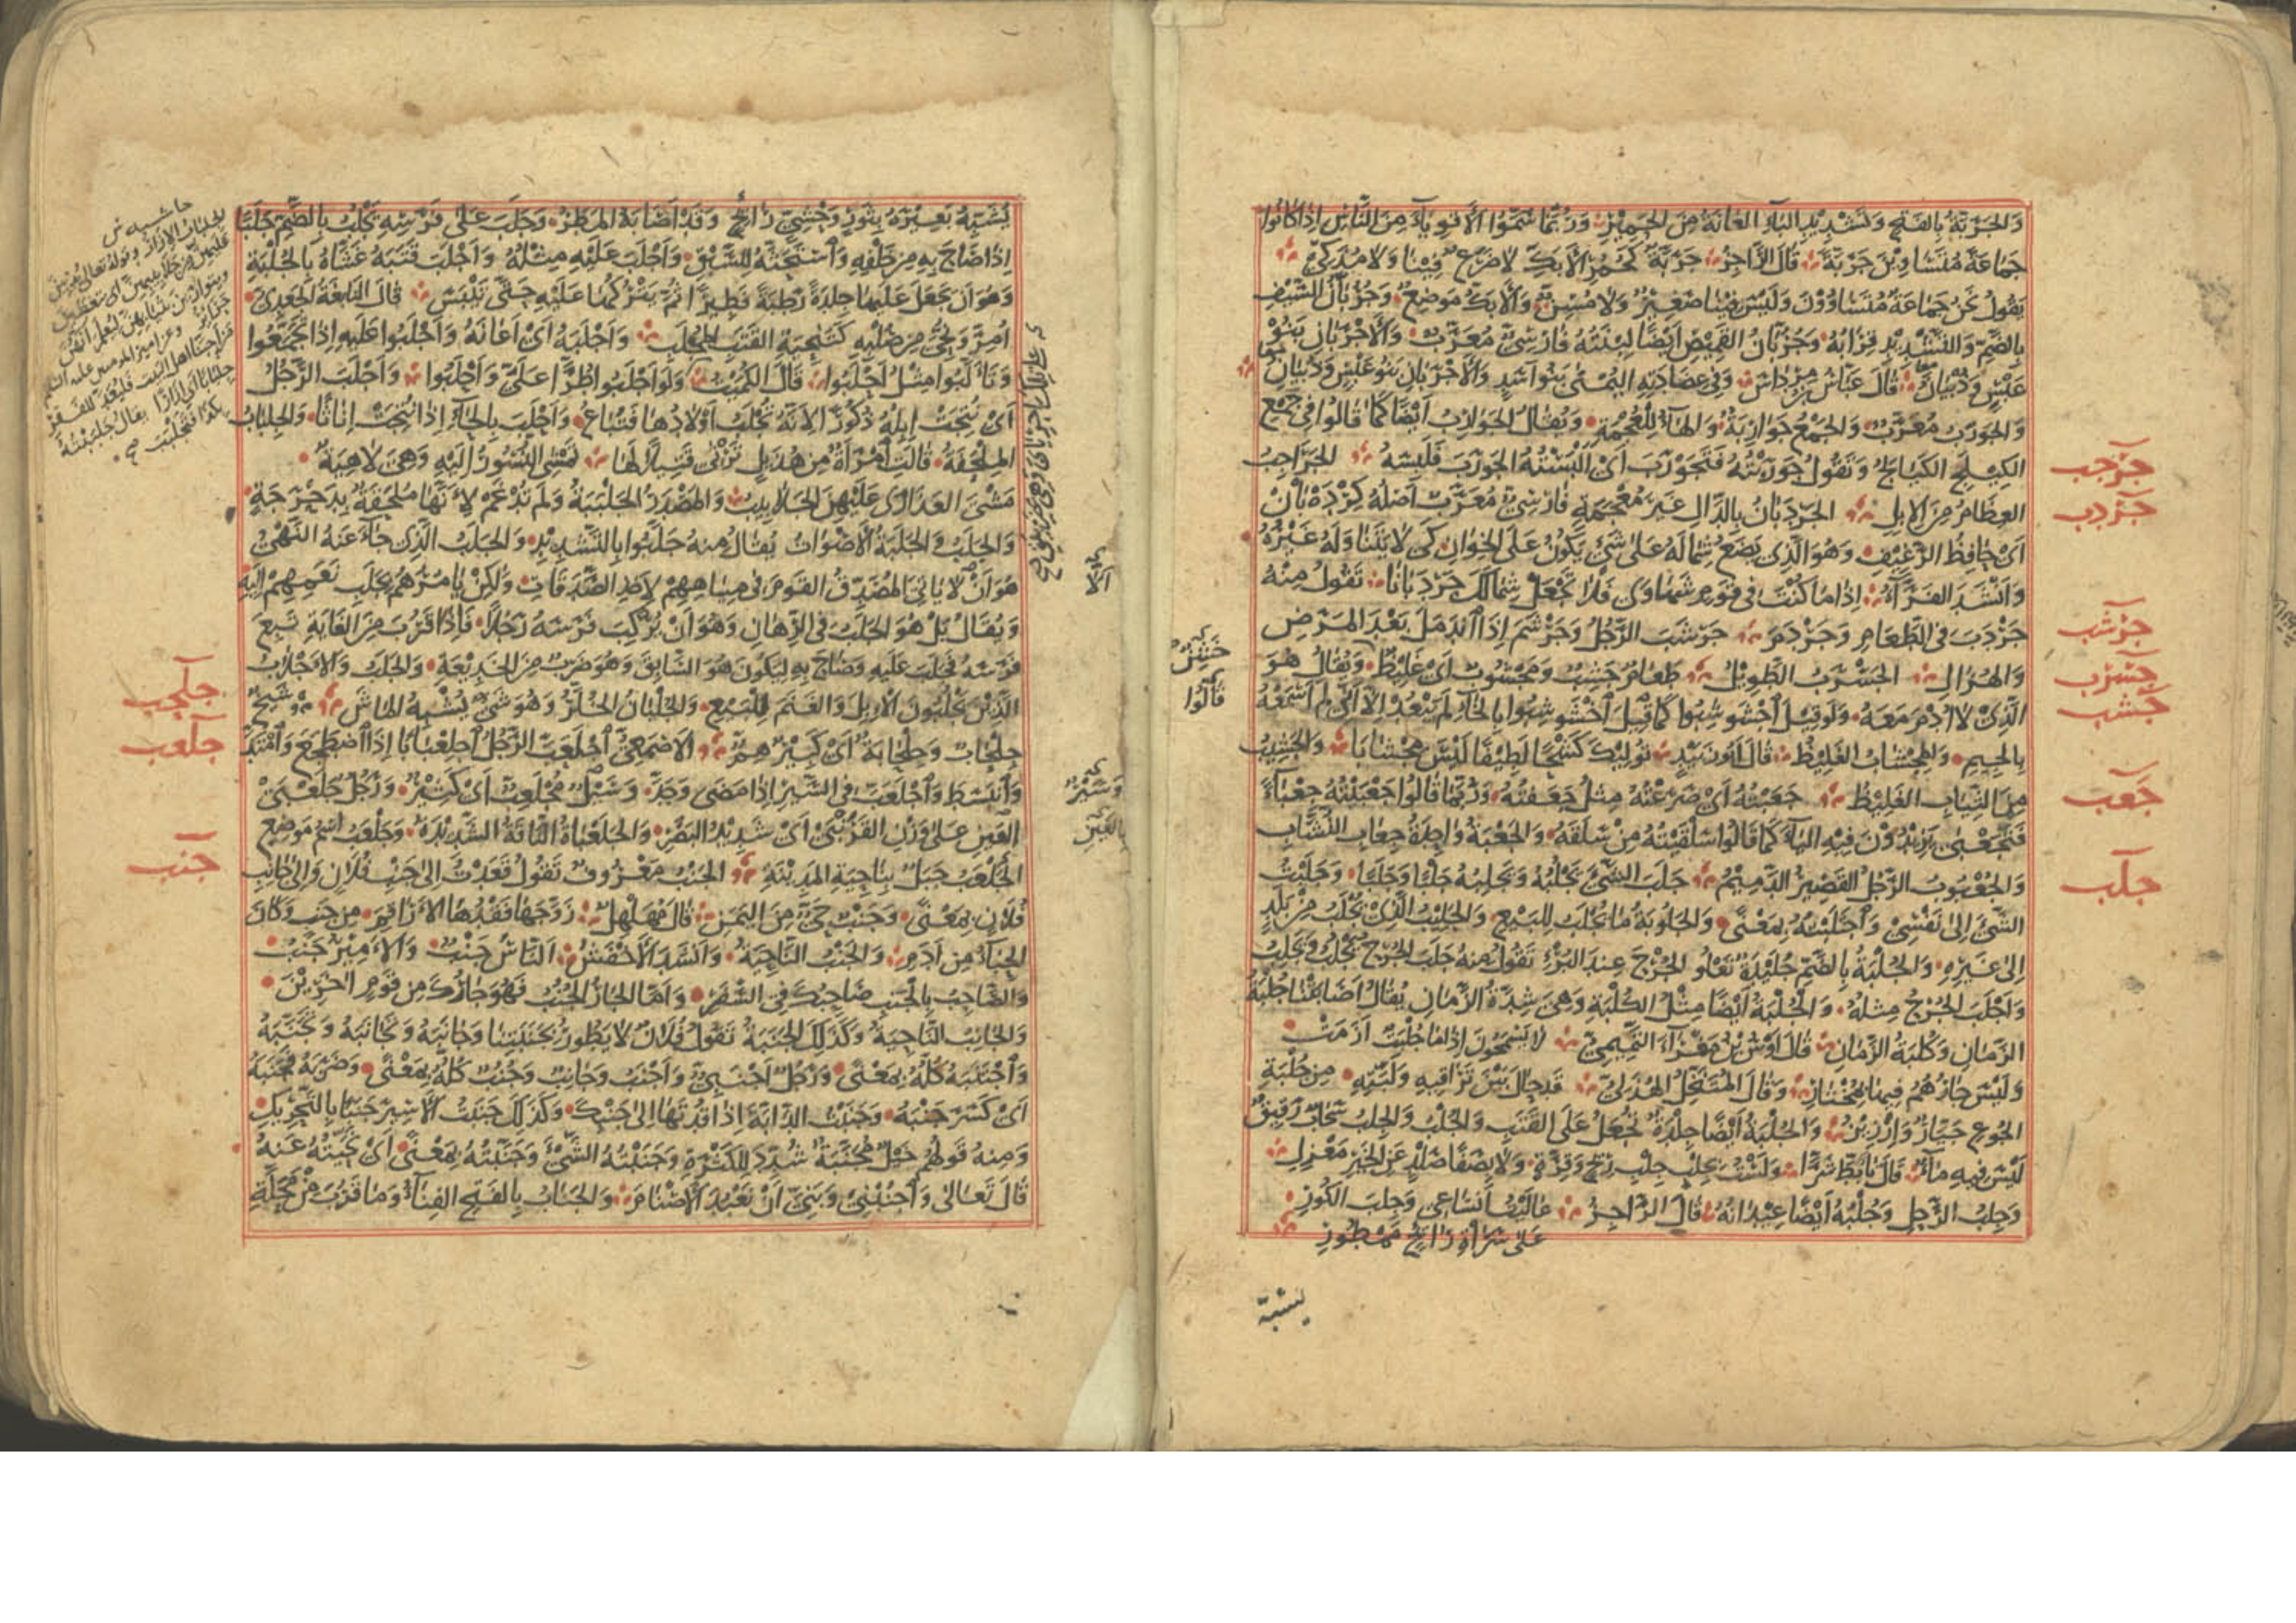 وَالجَرَبَّةُ بِالفَتْحِ وَتَشْدِيْدِ البَآءِ العَانَةُ مِنَ الحَمِيْرِ وَرُبَّمَا سَمَّوُا الأَقْوِيَآءَ مِنَ النَّاسِ اِذَا كَانُوا
جَمَاعَةً مُتَسَاوِيْنَ جَرَبَّةً قَالَ الرَّاجِزُ جَرَبَّةٌ كَحُمُرِ الأَبَكِّ لَا ضَرَعٌ فِيْنَا وَلَا مُذَكِّيْ
يَقُولُ نَحْنُ جَمَاعَةٌ مُتَسَاوُوْنَ وَلَيْسَ فِيْنَا صَغِيْرٌ وَلَا مُسِنٌّ وَالأَبَكُّ مَوْضِعٌ وَجُرُبَّانُ السَّيْفِ
بِالضَّمِّ وَالتَّشْدِيْدِ قِرَابُهُ وَجُرُبَّانُ القَمِيْصِ اَيْضًا لِبْنَتُهُ فَارْسِيٌّ مُعَرَّبٌ وَالأَجْرَبَانِ بَنُوْ
عَبْسٍ وَذُبْيَانُ قَالَ عَبَّاسُ بْنُ مِرْدَاسٍ وَفِيْ عِضَادَتِهِ اليُمْنٰى بَنُوْ اَسَدٍ وَالأَجْرَبَانِ بَنُوْ عَبْسٍ وَذُبْيَانِ
وَالجَوْرَبُ مُعَرَّبٌ وَالجَمْعُ جَوَارِبَةٌ وَالهَآءُ لِلْعُجْمَةِ وَيُقَالُ الجَوَارِبُ اَيْضًا كَمَا قَالُوا فِيْ جَمْعِ
الكِيْلَجِ الكَيَالِجُ وَتَقُولُ جَوْرَبْتُهُ فَتَجَوْرَبَ اَيْ اَلْبَسْتُهُ الجَوْرَبَ فَلَبِسَهُ الجَرَاجِبُ
جرجب
العِظَامُ مِنَ الاِبِلِ الجَرْدَبَانُ بِالدَّالِ غَيْرَ مُعْجَمَةٍ فَارْسِيٌّ مُعَرَّبٌ اَصْلُهُ كِرْدَهْ بَانْ
جردب
اَيْ حَافِظُ الرَّغِيْفِ وَهُوَ الَّذِيْ يَضَعُ شِمَالَهُ عَلٰى شَيْءٍ يَكُوْنُ عَلَى الخِوَانِ كَيْ لَا يَتَنَاوَلَهُ غَيْرُهُ
وَاَنْشَدَ الفَرَّآءُ اِذَا مَا كُنْتَ فِيْ قَوْمٍ شَهَاوٰى فَلَا تَجْعَلْ شِمَالَكَ جَرْدَبَانَا تَقُولُ مِنْهُ
جَرْدَبَ فِي الطَّعَامِ وَجَرْدَمَ جَرْشَبَ الرَّجُلُ وَجَرْشَمَ اِذَا انْدَمَلَ بَعْدَ المَرَضِ
جرشب
وَالهُزَالِ الجَسْرَبُ الطَّوِيْلُ طَعَامٌ جَشِبٌ وَمَجْشُوبٌ اَيْ غَلِيْظٌ وَيُقَالُ هُوَ
جسرب
الَّذِيْ لَا اُدْمَ مَعَهُ وَلَوْ قِيْلَ اخْشَوْشِبُوا كَمَا قِيْلَ اخْشَوْشِبُوا بِالخَاءِ لَمْ يَبْعُدْ اِلَّا اَنِّيْ لَمْ اَسْمَعْهُ
جشب
بِالجِيْمِ وَالمِجْشَابُ الغَلِيْظُ قَالَ اَبُو زُبَيْدٍ تُوْلِيْكَ كَشْحًا لَطِيْفًا لَيْسَ مِجْشَابَا وَالجَشِيْبُ
مِنَ الثِّيَابِ الغَلِيْظُ جَعَبْتُهُ اَيْ صَرَعْتُهُ مِثْلُ جَعَفْتُهُ وَرُبَّمَا قَالُوا جَعْبَيْتُهُ جِعْبَاءً
جعب
فَتَجَعْبٰى يَزِيْدُوْنَ فِيْهِ اليَاءَ كَمَا قَالُوا سَلْقَيْتُهُ مِنْ سَلَقَهُ وَالجَعْبَةُ وَاحِدَةُ جِعَابِ النُّشَّابِ
وَالجُعْبُوبُ الرَّجُلُ القَصِيْرُ الدَّمِيْمُ جَلَبَ الشَّيْءَ يَجْلُبُهُ وَيَجْلِبُهُ جَلْبًا وَجَلَبًا وَجَلَبْتُ
جلب
الشَّيْءَ اِلٰى نَفْسِيْ وَاجْتَلَبْتُهُ بِمَعْنًى وَالجَلُوبَةُ مَا يُجْلَبُ لِلْبَيْعِ وَالجَلِيْبُ الَّذِيْ يُجْلَبُ مِنْ بَلَدٍ
اِلٰى غَيْرِهِ وَالجُلْبَةُ بِالضَّمِّ جُلَيْدَةٌ تَعْلُو الجُرْحَ عِنْدَ البُرْءِ تَقُولُ مِنْهُ جَلَبَ الجُرْحُ يَجْلُبُ وَيَجْلِبُ
وَاَجْلَبَ الجُرْحُ مِثْلُهُ وَالجُلْبَةُ اَيْضًا مِثْلُ الكُلْبَةِ وَهِيَ شِدَّةُ الزَّمَانِ يُقَالُ اَصَابَتْنَا جُلْبَةُ
الزَّمَانِ وَكُلْبَةُ الزَّمَانِ قَالَ اَوْسُ بْنُ مَغْرَآءَ التَّمِيْمِيُّ لَا يَسْمَحُونَ اِذَا مَا جُلْبَةٌ اَزَمَتْ
وَلَيْسَ جَارُهُمْ فِيْهَا بِمُخْتَارِ وَقَالَ المُتَنَخِّلُ الهُذَلِيُّ قَدْ حَالَ بَيْنَ تَرَاقِيْهِ وَلَبَّتِهِ مِنْ جُلْبَةِ
الجُوعِ جَيَّارٌ وَاِرْزِيْزُ وَالجُلْبَةُ اَيْضًا جِلْدَةٌ تُجْعَلُ عَلَى القَتَبِ وَالجُلْبُ وَالجِلْبُ سَحَابٌ رَقِيْقٌ
لَيْسَ فِيْهِ مَاءٌ قَالَ تَأَبَّطَ شَرًّا وَلَسْتُ بِجِلْبٍ جِلْبِ رِيْحٍ وَقِرَّةٍ وَلَا بِصَفًا صَلْدٍ عَنِ الخَيْرِ مَعْزِلِ
وَجِلْبُ الرَّحْلِ وَجُلْبُهُ اَيْضًا عِيْدَانُهُ قَالَ الرَّاجِزُ عَالَيْتُ اَنْسَاعِيْ وَجِلْبَ الكُوْرِ
عَلٰى سَرَاةِ رَائِحٍ مَمْطُوْرِ
يشبه
يُشَبِّهُ بَعِيْرَهُ بِثَوْرٍ وَحْشِيٍّ رَائِحٍ وَقَدْ اَصَابَهُ المَطَرُ وَجَلَبَ عَلٰى فَرَسِهِ يَجْلُبُ بِالضَّمِّ جَلَبًا
اِذَا صَاحَ بِهِ مِنْ خَلْفِهِ وَاسْتَحَثَّهُ لِلسَّبْقِ وَاَجْلَبَ عَلَيْهِ مِثْلُهُ وَاَجْلَبَ قَتَبَهُ غَشَّاهُ بِالجُلْبَةِ
وَهُوَ اَنْ يَجْعَلَ عَلَيْهَا جِلْدَةً رَطْبَةً فَطِيْرًا ثُمَّ يَتْرُكُهَا عَلَيْهِ حَتّٰى تَيْبَسَ قَالَ النَّابِغَةُ الجَعْدِيُّ
اُمِرَّ وَنُحِّيَ مِنْ صُلْبِهِ كَتَنْحِيَةِ القَتَبِ المُجْلَبِ وَاَجْلَبَهُ اَيْ اَعَانَهُ وَاَجْلَبُوا عَلَيْهِ اِذَا تَجَمَّعُوا
وَتَأَلَّبُوا مِثْلُ اَحْلَبُوا قَالَ الكُمَيْتُ وَلَوْ اَجْلَبُوا طُرًّا عَلَيَّ وَاَحْلَبُوا وَاَجْلَبَ الرَّجُلُ
اَيْ نُتِجَتْ اِبِلُهُ ذُكُوْرًا لِاَنَّهُ تُجْلَبُ اَوْلَادُهَا فَتُبَاعُ وَاَحْلَبَ بِالحَاءِ اِذَا نُتِجَتْ اِنَاثًا وَالجِلْبَابُ
المِلْحَفَةُ قَالَتِ امْرَأَةٌ مِنْ هُذَيْلٍ تَرْثِيْ قَتِيْلًا لَهَا تَمْشِي النُّسُوْرُ اِلَيْهِ وَهْيَ لَاهِيَةٌ
مَشْيَ العَذَارٰى عَلَيْهِنَّ الجَلَابِيْبُ وَالمَصْدَرُ الجَلْبَبَةُ وَلَمْ تُدْغَمْ لِاَنَّهَا مُلْحَقَةٌ بِدَحْرَجَةٍ
وَالجَلَبُ وَالجَلَبَةُ الأَصْوَاتُ يُقَالُ مِنْهُ جَلَّبُوا بِالتَّشْدِيْدِ وَالجَلَبُ الَّذِيْ جَاءَ عَنْهُ النَّهْيُ
هُوَ اَنْ لَا يَأْتِيَ المُصَدِّقُ القَوْمَ فِيْ مِيَاهِهِمْ لِاَخْذِ الصَّدَقَاتِ وَلٰكِنْ يَأْمُرُهُمْ بِجَلْبِ نَعَمِهِمْ اِلَيْهِ
وَيُقَالُ بَلْ هُوَ الجَلَبُ فِي الرِّهَانِ وَهُوَ اَنْ يُرْكِبَ فَرَسَهُ رَجُلًا فَاِذَا قَرُبَ مِنَ الغَايَةِ تَبِعَ
فَرَسَهُ فَجَلَبَ عَلَيْهِ وَصَاحَ بِهِ لِيَكُوْنَ هُوَ السَّابِقَ وَهُوَ ضَرْبٌ مِنَ الخَدِيْعَةِ وَالجَلَبُ وَالأَجْلَابُ
الَّذِيْنَ يَجْلُبُونَ الاِبِلَ وَالغَنَمَ لِلْبَيْعِ وَالجُلْبَانُ الخُلَّرُ وَهُوَ شَيْءٌ يُشْبِهُ المَاشَ شَيْخٌ
جلحب
جِلْحَابٌ وَجِلْحَابَةٌ اَيْ كَبِيْرٌ هِمٌّ الأَصْمَعِيُّ اجْلَعَبَّ الرَّجُلُ اجْلِعْبَابًا اِذَا اضْطَجَعَ وَامْتَدَّ
جلعب
وَانْبَسَطَ وَاجْلَعَبَّ فِي السَّيْرِ اِذَا مَضٰى وَجَدَّ وَسَيْلٌ مُجْلَعِبٌّ اَيْ كَثِيْرٌ وَرَجُلٌ جَلَعْبَى
العَيْنِ عَلٰى وَزْنِ القَرَنْبٰى اَيْ شَدِيْدُ البَصَرِ وَالجَلَعْبَاةُ النَّاقَةُ الشَّدِيْدَةُ وَجَلْعَبُ اسْمُ مَوْضِعٍ
الجَلْعَبُ جَبَلٌ بِنَاحِيَةِ المَدِيْنَةِ الجَنْبُ مَعْرُوفٌ تَقُولُ قَعَدْتُ اِلٰى جَنْبِ فُلَانٍ وَاِلٰى جَانِبِ
جنب
فُلَانٍ بِمَعْنًى وَجَنْبٌ حَيٌّ مِنَ اليَمَنِ قَالَ مُهَلْهِلٌ زَوَّجَهَا فَقْدُهَا الأَرَاقِمَ مِنْ جَنْبٍ وَكَانَ
الحِبَاءُ مِنْ اَدَمِ وَالجَنْبُ النَّاحِيَةُ وَاَنْشَدَ الأَخْفَشُ النَّاسُ جَنْبٌ وَالأَمِيْرُ جَنْبُ
وَالصَّاحِبُ بِالجَنْبِ صَاحِبُكَ فِي السَّفَرِ وَاَمَّا الجَارُ الجُنُبُ فَهُوَ جَارُكَ مِنْ قَوْمٍ اٰخَرِيْنَ
وَالجَانِبُ النَّاحِيَةُ وَكَذٰلِكَ الجَنَبَةُ تَقُولُ فُلَانٌ لَا يَطُورُ بِجَنَبَتِنَا وَجَانَبَهُ وَتَجَانَبَهُ وَتَجَنَّبَهُ
وَاجْتَنَبَهُ كُلُّهُ بِمَعْنًى وَرَجُلٌ اَجْنَبِيٌّ وَاَجْنَبُ وَجَانِبٌ وَجُنُبٌ كُلُّهُ بِمَعْنًى وَضَرَبَهُ فَجَنَبَهُ
اَيْ كَسَرَ جَنْبَهُ وَجَنَبْتُ الدَّابَّةَ اِذَا قُدْتَهَا اِلٰى جَنْبِكَ وَكَذٰلِكَ جَنَبْتُ الأَسِيْرَ جَنَبًا بِالتَّحْرِيْكِ
وَمِنْهُ قَوْلُهُمْ خَيْلٌ مُجَنَّبَةٌ شُدِّدَ لِلْكَثْرَةِ وَجَنَبْتُهُ الشَّيْءَ وَجَنَّبْتُهُ بِمَعْنًى اَيْ نَحَّيْتُهُ عَنْهُ
قَالَ تَعَالٰى وَاجْنُبْنِيْ وَبَنِيَّ اَنْ نَعْبُدَ الأَصْنَامَ وَالجَنَابُ بِالفَتْحِ الفِنَآءُ وَمَا قَرُبَ مِنْ مَحَلَّةِ